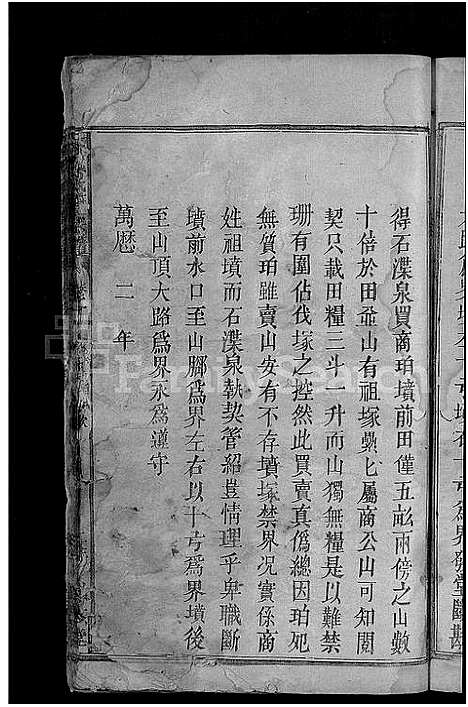 得石渫泉買商珀墳前田僅五畝兩傍之山數
十倍於田並山有祖塚纍匕屬商公山可知閱
契只載田糧二斗一升而山獨無糧是以難禁
珊有圍佔伐塚之控然此買賣真偽總因珀死
無質珀雖賣山安有不存墳塚禁界况實係商
姓祖墳而石渫泉執契管紹豈情理乎卑職斷
墳前水口至山腳爲界左右以十弓爲界墳後
至山頂大路爲界永爲遵守
萬曆二年
FamilySearch